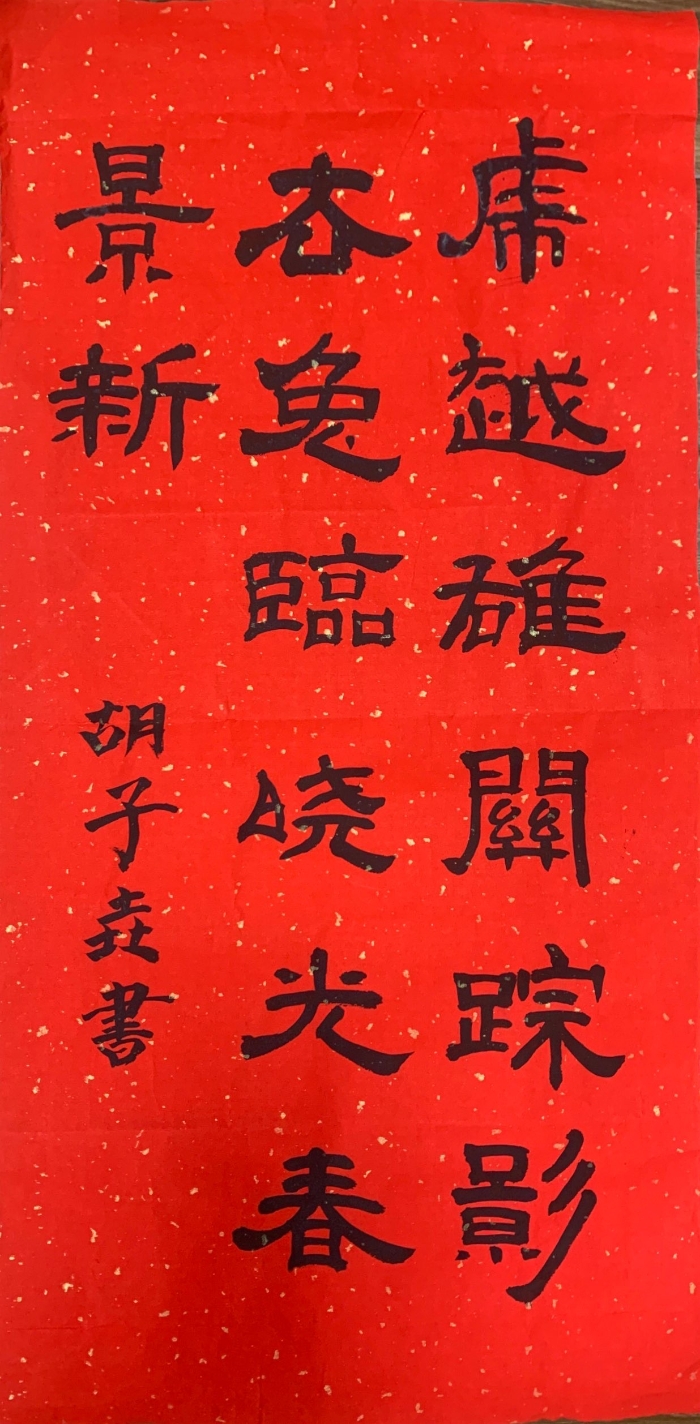 虎越雄關踪影
去兔臨晓光春
景新
胡子垚書